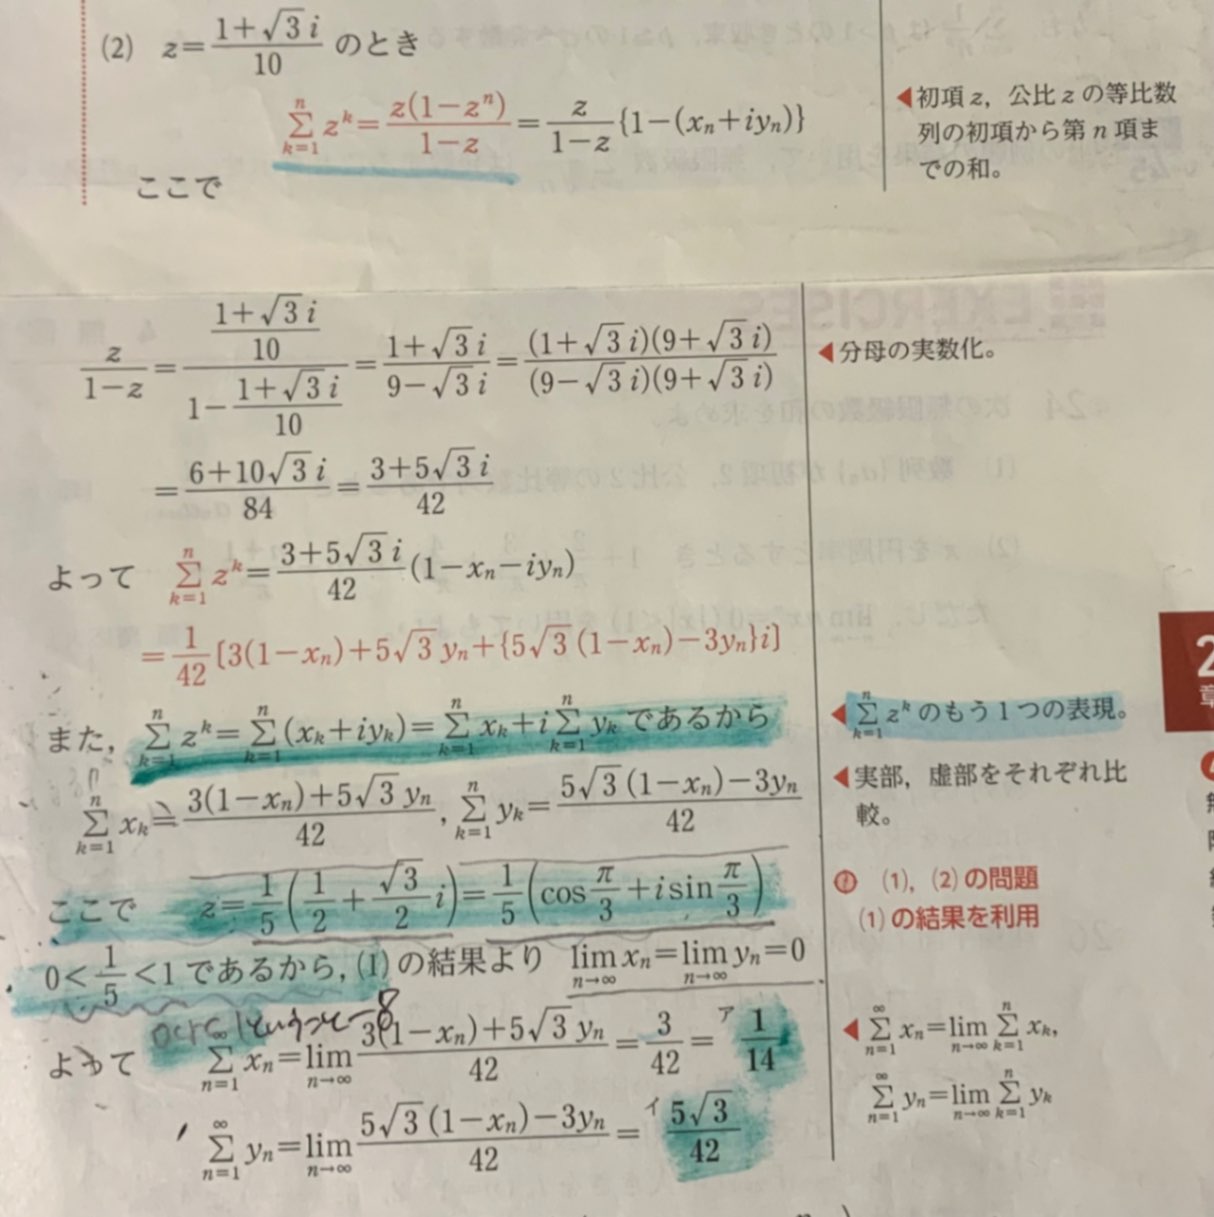 (2) z=\frac{1+\sqrt{3}i}{10} のとき
\sum_{k=1}^{n} z^k=\frac{z(1-z^n)}{1-z}=\frac{z}{1-z}{1-(x_n+iy_n)}
◀初項 z, 公比 z の等比数
列の初項から第 n 項ま
での和。
ここで
\frac{z}{1-z}=\frac{\frac{1+\sqrt{3}i}{10}}{1-\frac{1+\sqrt{3}i}{10}}=\frac{1+\sqrt{3}i}{9-\sqrt{3}i}=\frac{(1+\sqrt{3}i)(9+\sqrt{3}i)}{(9-\sqrt{3}i)(9+\sqrt{3}i)}
◀分母の実数化。
=\frac{6+10\sqrt{3}i}{84}=\frac{3+5\sqrt{3}i}{42}
よって \sum_{k=1}^{n} z^k=\frac{3+5\sqrt{3}i}{42}(1-x_n-iy_n)
=\frac{1}{42}[3(1-x_n)+5\sqrt{3}y_n+{5\sqrt{3}(1-x_n)-3y_n}i]
また, \sum_{k=1}^{n} z^k=\sum_{k=1}^{n}(x_k+iy_k)=\sum_{k=1}^{n} x_k+i\sum_{k=1}^{n} y_k であるから
◀\sum_{k=1}^{n} z^k のもう1つの表現。
\sum_{k=1}^{n} x_k=\frac{3(1-x_n)+5\sqrt{3}y_n}{42}, \sum_{k=1}^{n} y_k=\frac{5\sqrt{3}(1-x_n)-3y_n}{42}
◀実部, 虚部をそれぞれ比
較。
ここで z=\frac{1}{5}(\frac{1}{2}+\frac{\sqrt{3}}{2}i)=\frac{1}{5}(cos\frac{π}{3}+isin\frac{π}{3})
(1), (2) の問題
(1) の結果を利用
0<\frac{1}{5}<1 であるから, (1) の結果より \lim_{n→∞} x_n=\lim_{n→∞} y_n=0
よって \sum_{n=1}^{∞} x_n=\lim_{n→∞}\frac{3(1-x_n)+5\sqrt{3}y_n}{42}=\frac{3}{42}=ア\frac{1}{14}
◀\sum_{n=1}^{∞} x_n=\lim_{n→∞}\sum_{k=1}^{n} x_k,
\sum_{n=1}^{∞} y_n=\lim_{n→∞}\sum_{k=1}^{n} y_k
\sum_{n=1}^{∞} y_n=\lim_{n→∞}\frac{5\sqrt{3}(1-x_n)-3y_n}{42}=イ\frac{5\sqrt{3}}{42}
2
章